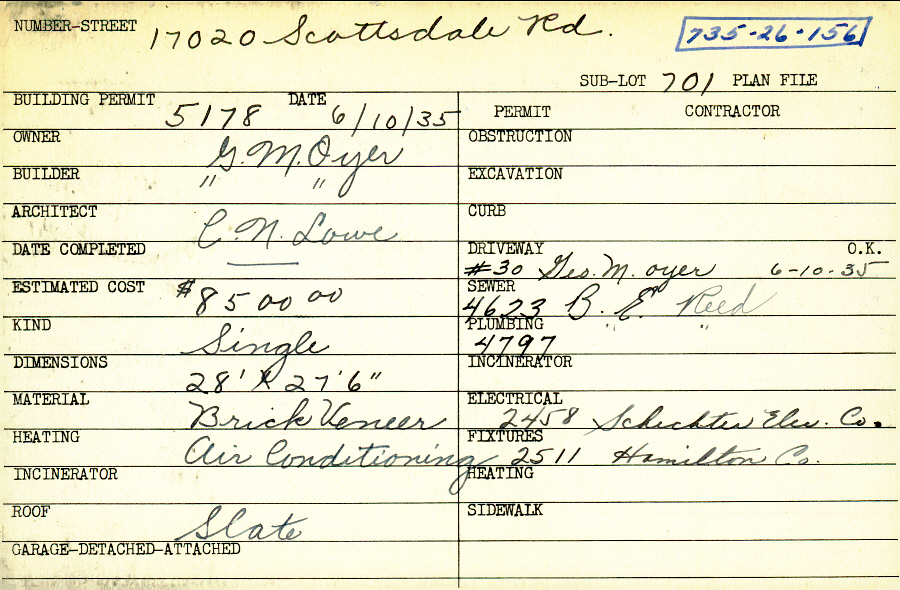 NUMBER-STREET 17020 Scottsdale Rd. 735-26-156
SUB-LOT 701 PLAN FILE
BUILDING PERMIT 5178 DATE 6/10/35
PERMIT CONTRACTOR
OWNER G. M. Oyer
OBSTRUCTION
BUILDER " "
EXCAVATION
ARCHITECT C. N. Lowe
CURB
DATE COMPLETED
DRIVEWAY O.K.
#30 Geo. M. oyer 6-10-35
ESTIMATED COST $8500 00
SEWER
4623 B. E. Reed
KIND Single
PLUMBING " "
4797
DIMENSIONS 28' X 27'6"
INCINERATOR
MATERIAL Brick Veneer
ELECTRICAL
2458 Schechter Elec. Co.
HEATING Air Conditioning
FIXTURES
2511 Hamilton Co.
INCINERATOR
HEATING
ROOF Slate
SIDEWALK
GARAGE-DETACHED-ATTACHED